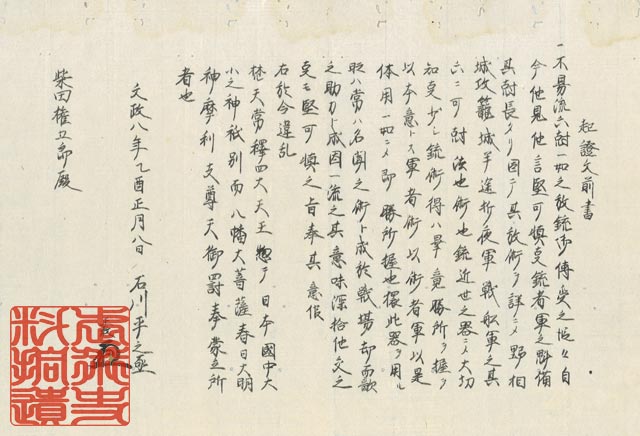 起證文前書
一不易流六討一如之放銃御傳受之𠙚々自
今他見他言堅可慎夏銃者軍之點備
其討長クリ因テ其放術ヲ詳ニメ野相
城攻籠城半途折夜軍戦船軍之其
六ニ可討法也術也銃近世之器ニメ大切
知夏少シ銃術得ハ畢竟勝所ヲ握ヲ
以本意トス軍者術以術者軍以是
体用一如ニメ即勝所握也懐此器ヲ用ル
取ハ常ハ名聞之術ト成於戦場却而敵
之助力ト成因一流之其意味深拾他交之
夏モ堅可慎之旨奉其意候
右於今違乱
梵天帝釋四大天王惣テ日本國中大
小之神祇別而八幡大菩薩春日大明
神摩利支尊天御罰奉蒙立所
者也
文政八年乙酉正月八日 石川平之亟
柴田権五郎殿